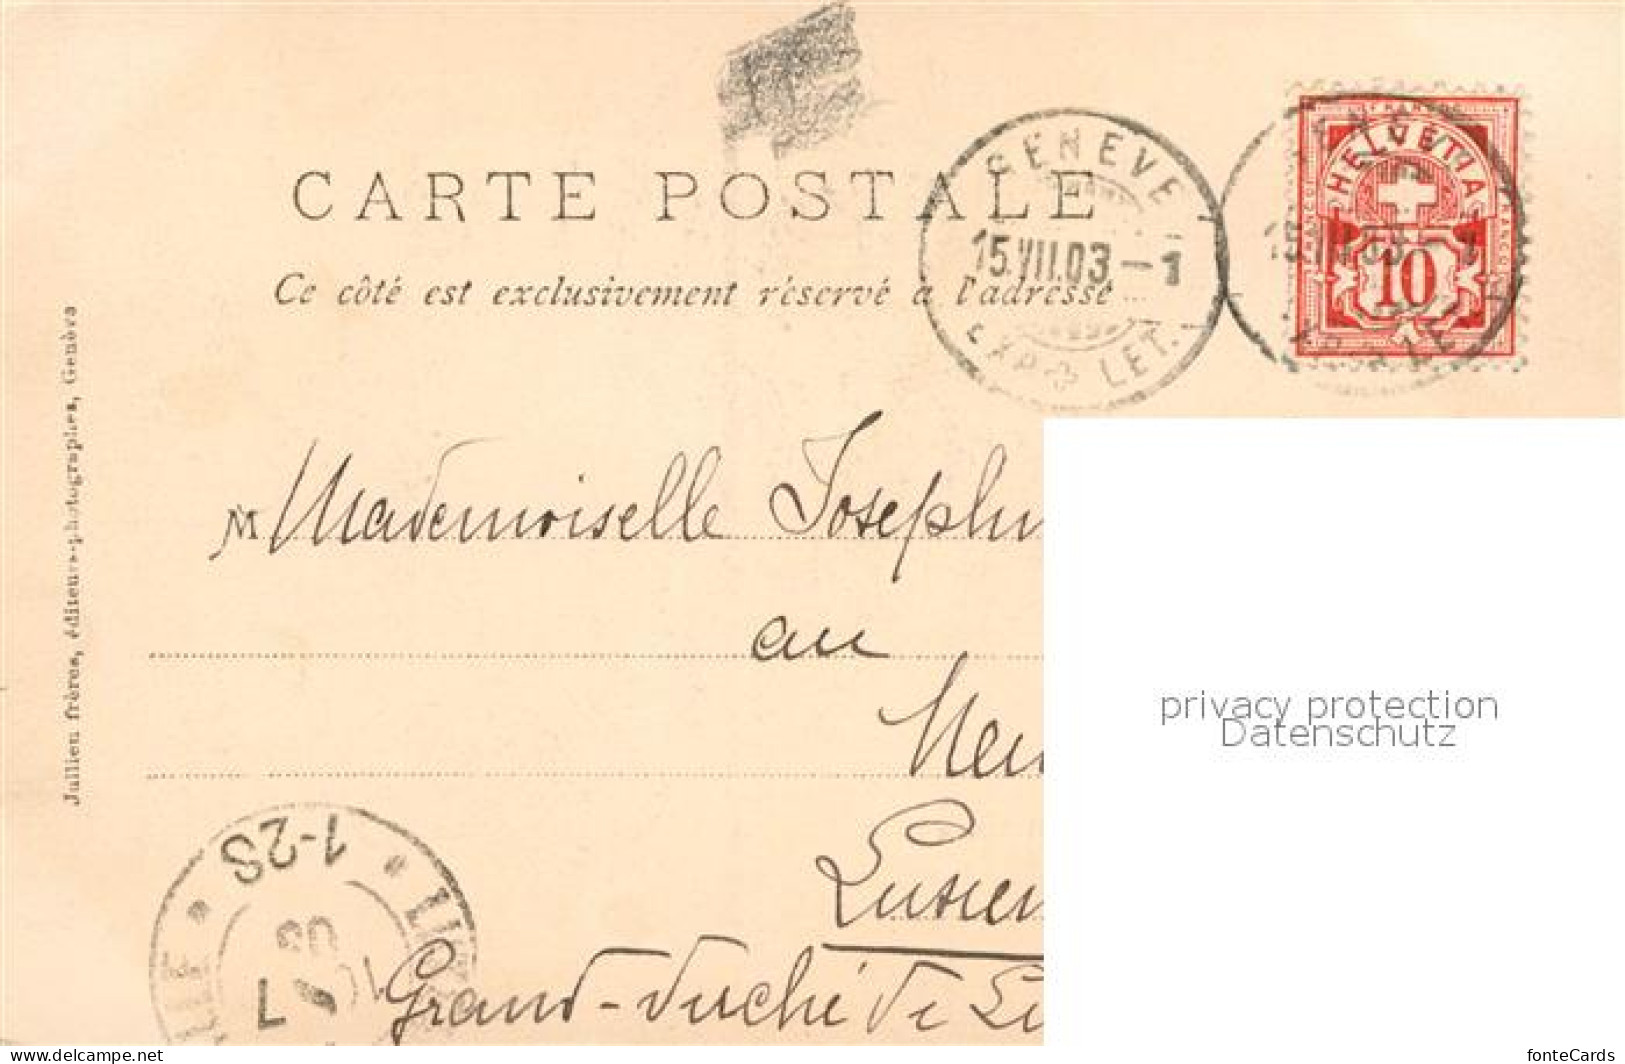 CARTE POSTALE
Ce côté est exclusivement réservé à l'adresse
GENEVE
15.VII.03.–1
EXP. LET.
HELVETIA
FRANCO
10
Jullien frères, éditeurs-photographes, Genève
M Mademoiselle
au
Grand-Duché de
1-2S
03
7
privacy protection
Datenschutz
www.ansichtskartenversand.com
fonteCards